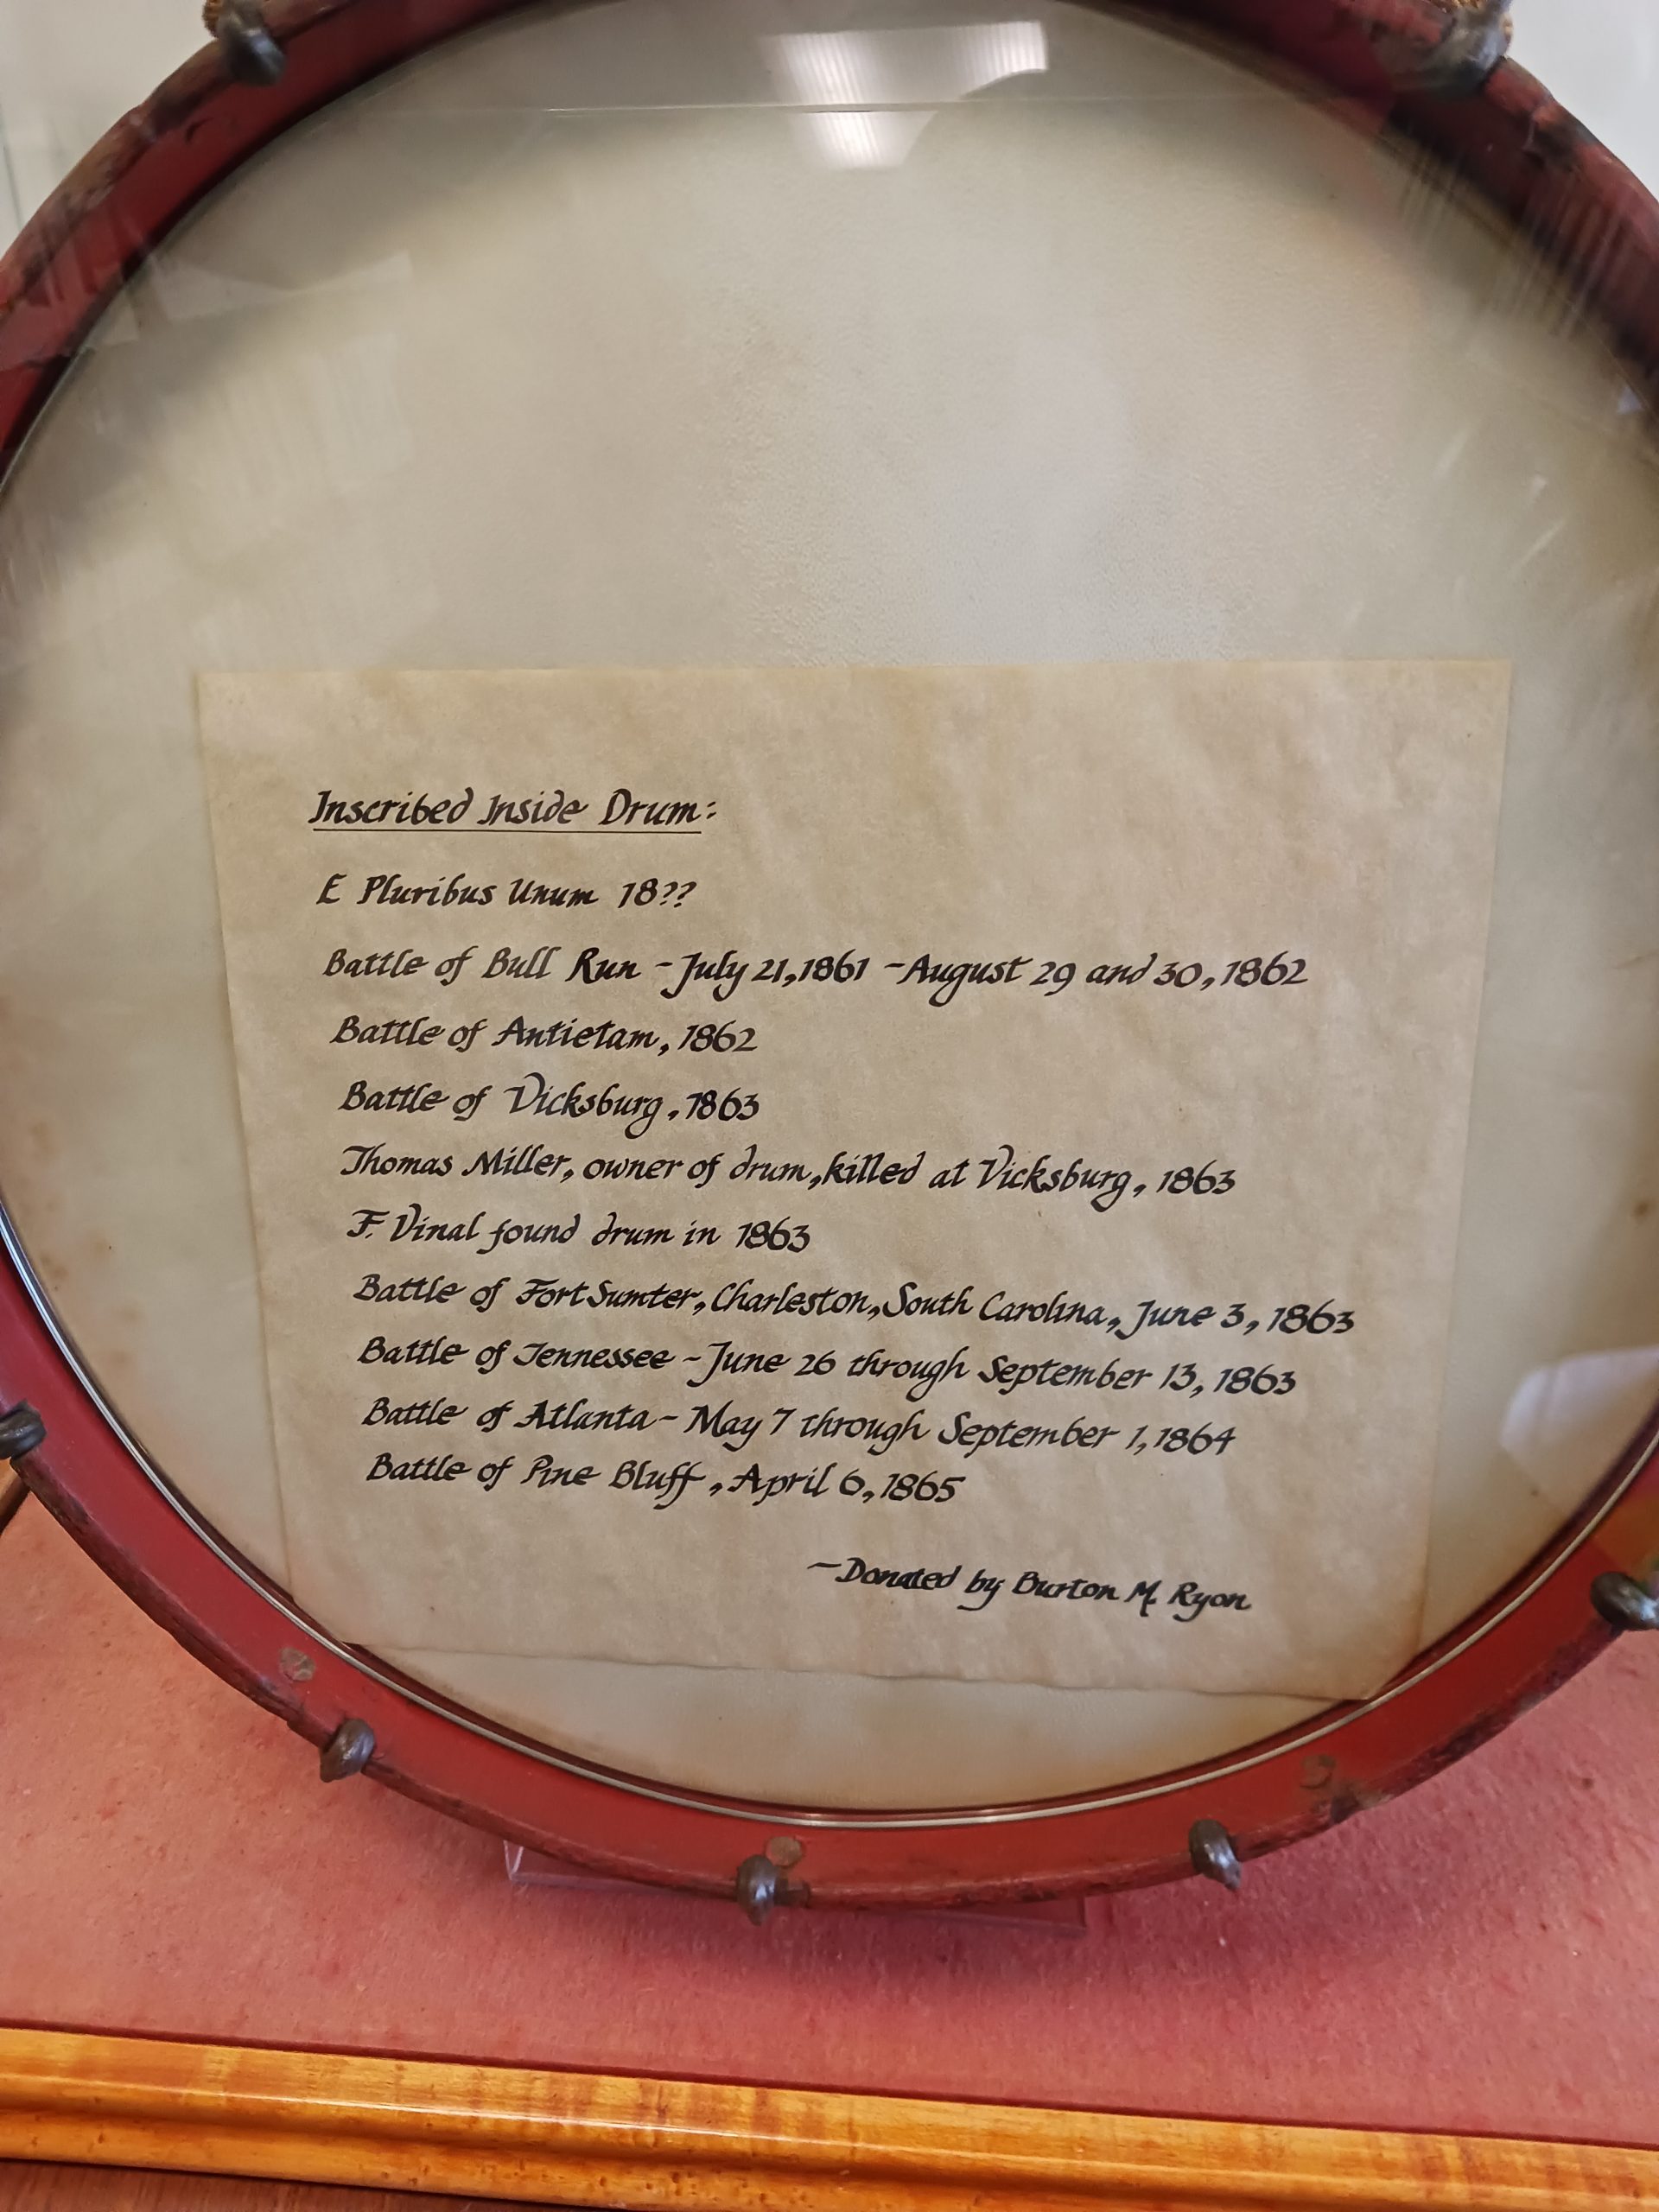 Inscribed Inside Drum:
E Pluribus Unum 18??
Battle of Bull Run - July 21, 1861 - August 29 and 30, 1862
Battle of Antietam, 1862
Battle of Vicksburg, 1863
Thomas Miller, owner of drum, killed at Vicksburg, 1863
F. Vinal found drum in 1863
Battle of Fort Sumter, Charleston, South Carolina, June 3, 1863
Battle of Tennessee - June 26 through September 13, 1863
Battle of Atlanta - May 7 through September 1, 1864
Battle of Pine Bluff, April 6, 1865
- Donated by Burton M. Ryon